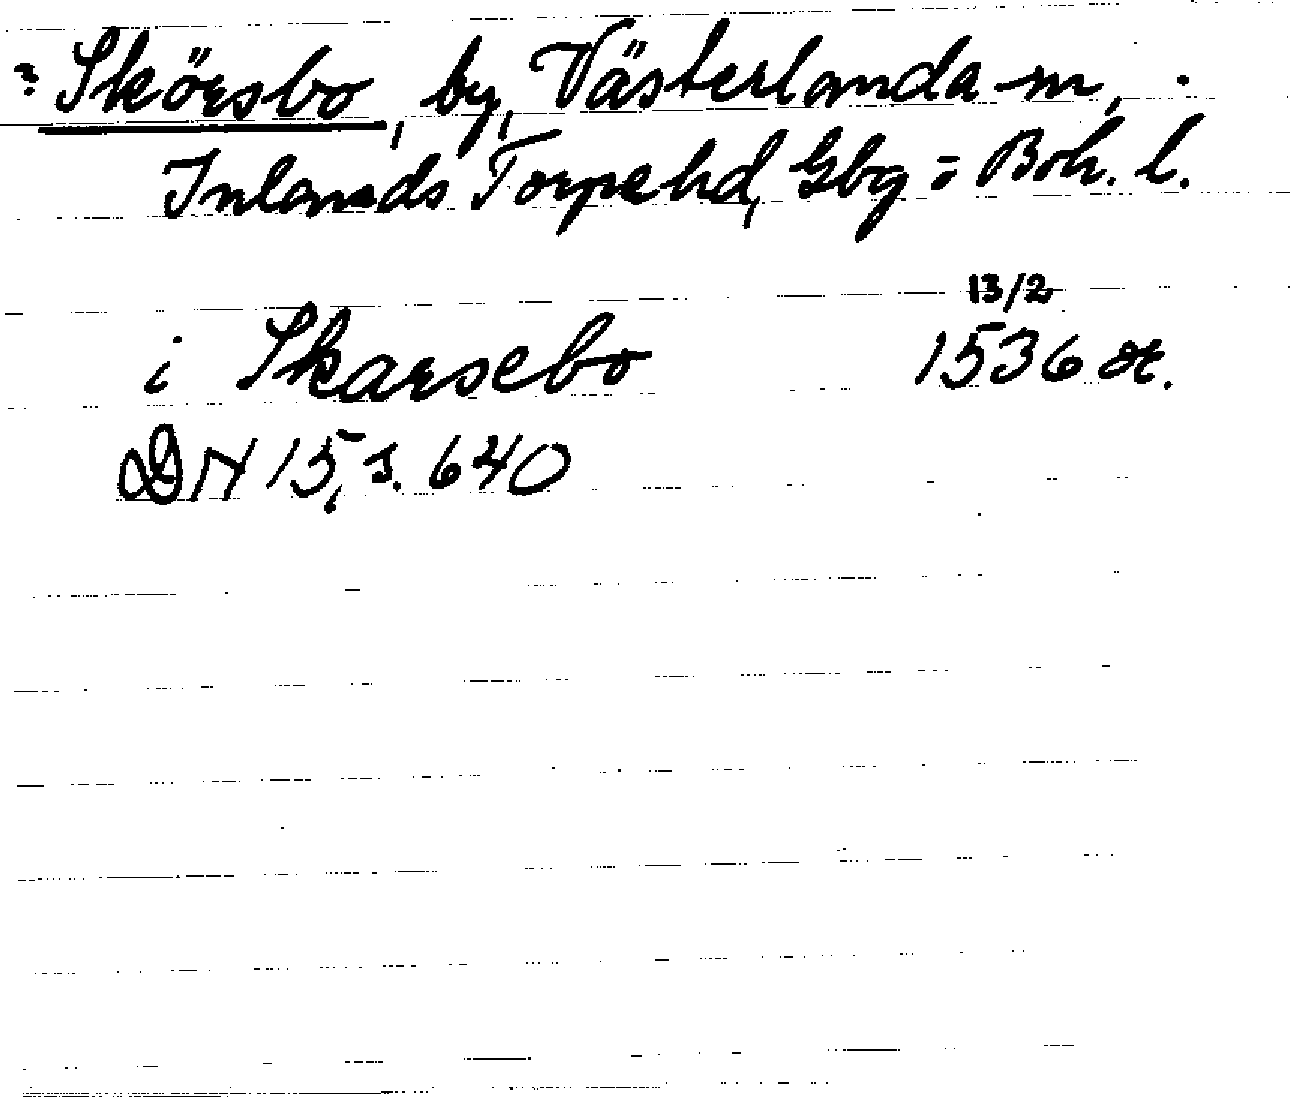 ? Skörsbo, by, Västerlanda sn,
Inlands Torpe hd, Gbg = Boh. l.
13/2
i Skarsebo 1536 or.
DN 15, s. 640